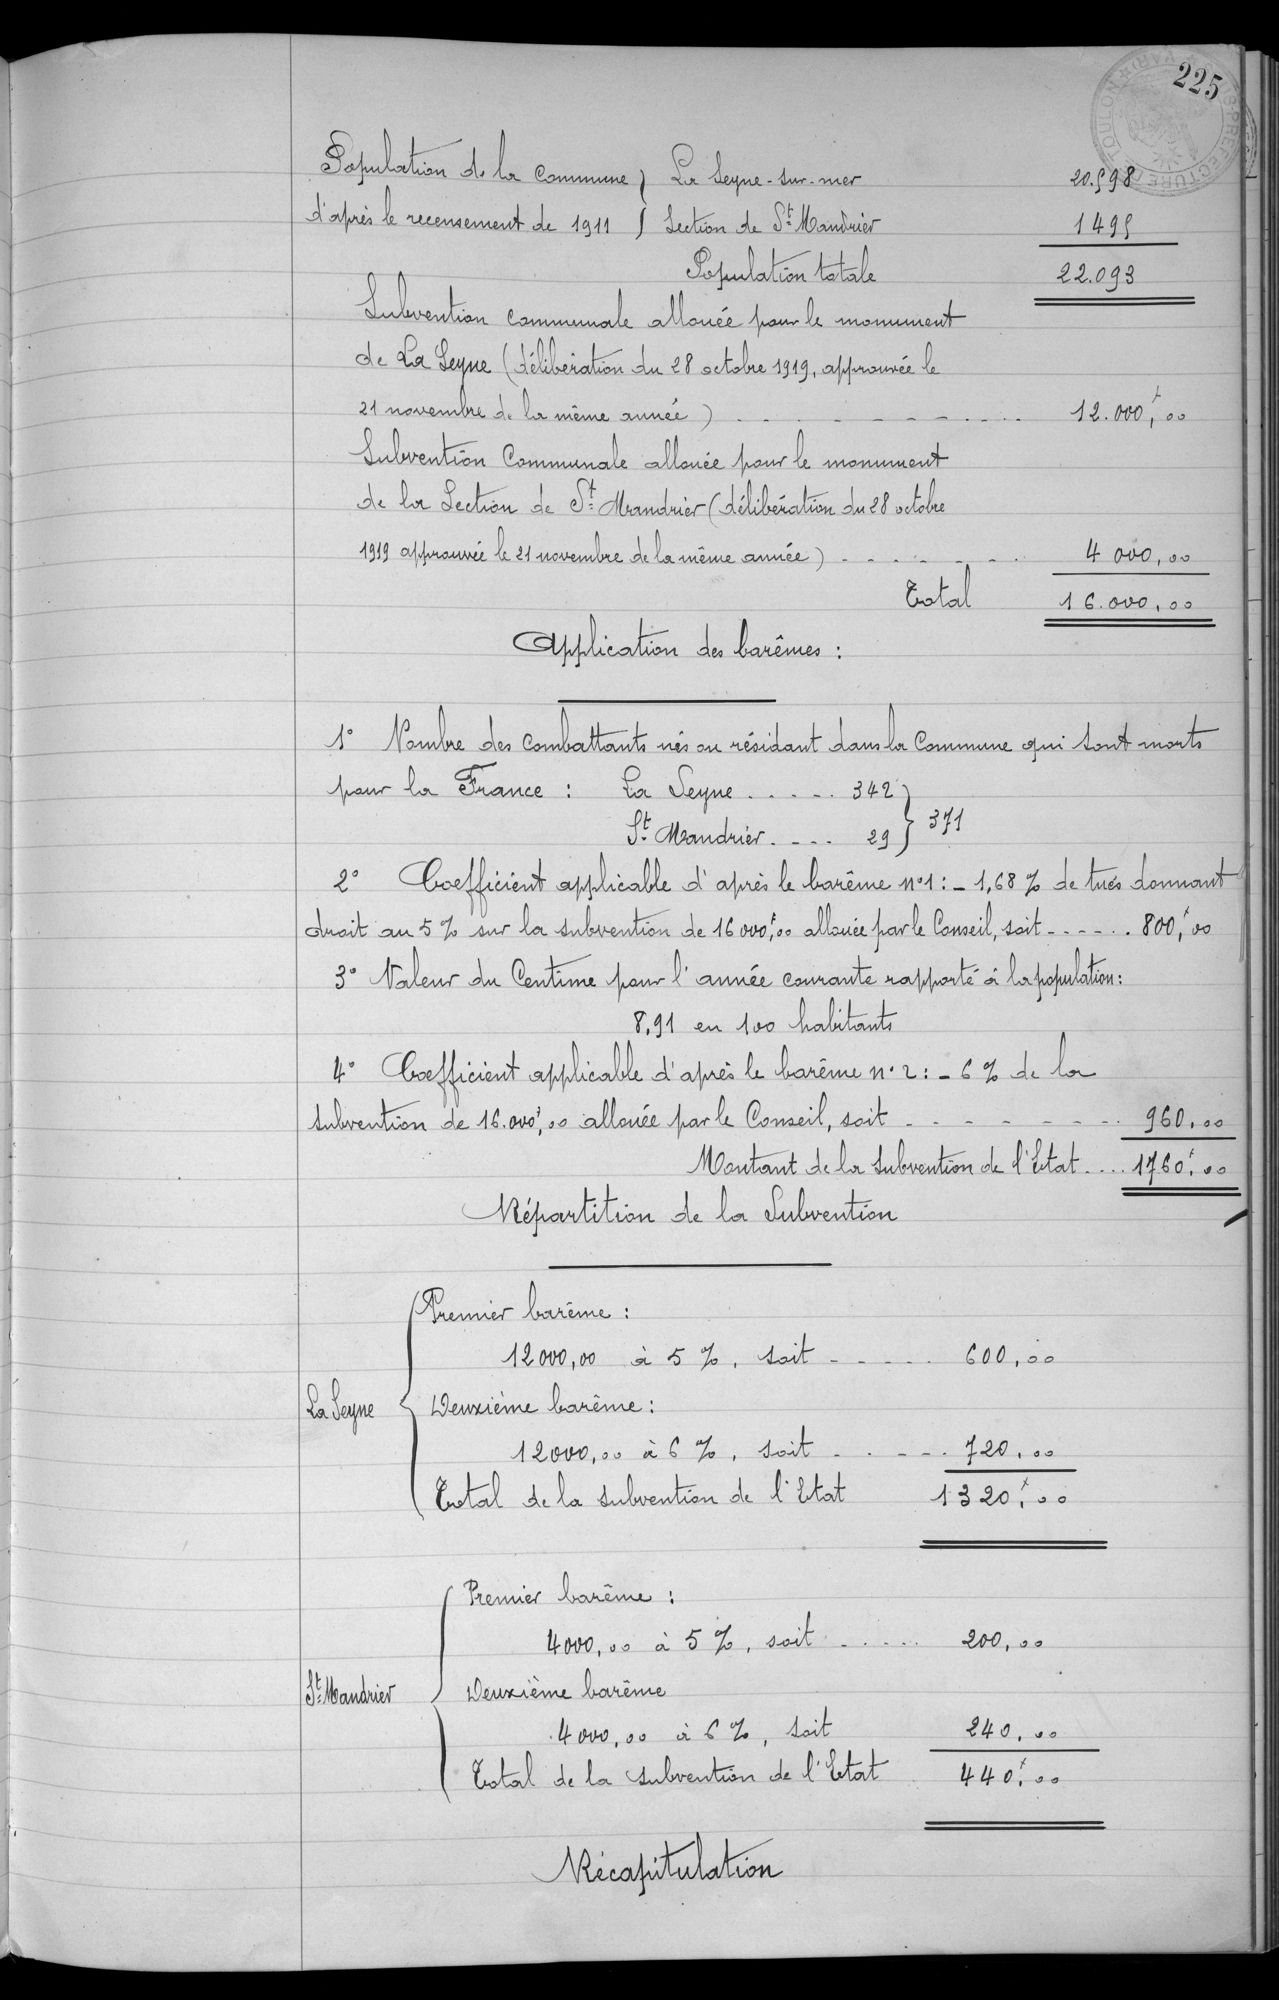 225
Population de la Commune } La Seyne-sur-mer 20.598
d'après le recensement de 1911 } Section de St Mandrier 1495
Population totale 22.093
Subvention communale allouée pour le monument
de La Seyne (délibération du 28 octobre 1919, approuvée le
21 novembre de la même année) - - - - - - - - 12.000f,00
Subvention Communale allouée pour le monument
de la Section de St Mandrier (délibération du 28 octobre
1919 approuvée le 21 novembre de la même année) - - - - - - 4 000,00
Total 16.000,00
Application des barêmes :
1° Nombre des combattants nés ou résidant dans la Commune qui sont morts
pour la France : La Seyne . . . . . 342 }
St Mandrier . - - - 29 } 371
2° Coefficient applicable d'après le barême n°1 : - 1,68 % de tués donnant
droit au 5 % sur la subvention de 16 000f,00 allouée par le Conseil, soit - - - - - . 800f,00
3° Valeur du Centime pour l'année courante rapporté à la population :
8,91 en 100 habitants
4° Coefficient applicable d'après le barême n° 2 : - 6 % de la
subvention de 16.000f,00 allouée par le Conseil, soit - - - - - - - - 960,00
Montant de la subvention de l'Etat . . . . 1760f,00
Répartition de la Subvention
Premier barême :
12000,00 à 5 %, soit - - - - - 600,00
La Seyne { Deuxième barême :
12000,00 à 6 %, soit - - - - - 720,00
Total de la subvention de l'Etat 1320f,00
Premier barême :
4000,00 à 5 %, soit - . . . . 200,00
St Mandrier { Deuxième barême
4000,00 à 6 %, soit 240,00
Total de la subvention de l'Etat 440f,00
Récapitulation